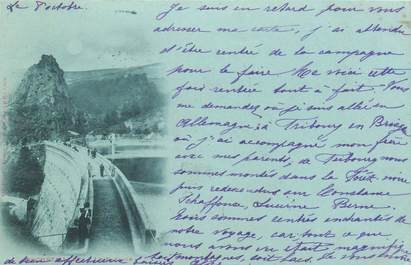 Le 8 octobre.
Je suis en retard pour vous
adresser ma carte, j'ai attendu
d'être rentrée de la campagne
pour le faire Me voici cette
fois rentrée tout à fait. Vous
me demandez où je suis allée en
Allemagne à Fribourg en Brisg
où j'ai accompagné mon frère
avec mes parents, de Fribourg nous
sommes montés dans la Forêt noire
puis redescendus sur Constance
Schaffouse, Lucerne Berne.
Nous sommes rentrés enchantés de
notre voyage, car tout ce que
nous avons vu était magnifique
les montagnes, soit lacs. Je vous
de bien affectueux